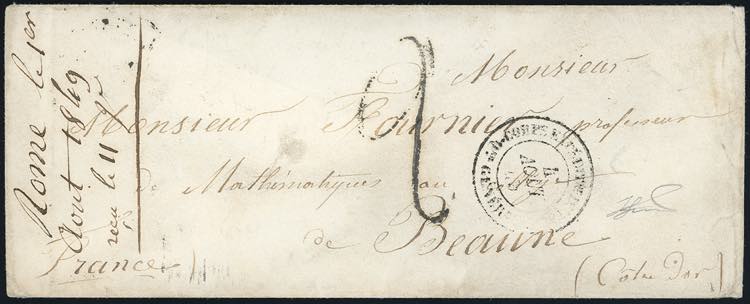 Rome le 1er
Aout 1849
reçu le 11
Monsieur
Monsieur Fournier professeur
de Mathématiques au
de Beaune
(France)
(Côte Dor)
2
CORPS EXPED
4
AOUT